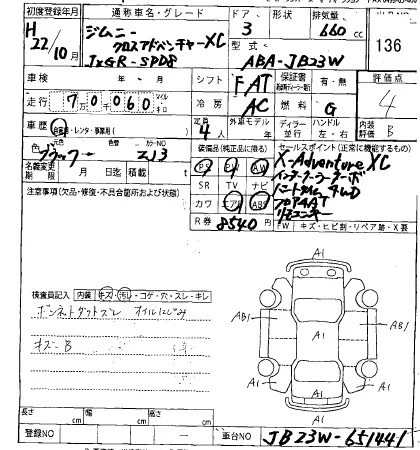 初度登録年月 通称車名・グレード ドア 形状 排気量
H22/10月 ジムニー クロスアドベンチャーXC 3 660cc 136
型式 ABA-JB23W
車検 年 月 シフト FAT 保証書 有・無 評価点 4
走行 70060 マイル キロ 冷房 AC 燃料 G
車歴 自家用・レンタ・事業用( ) 定員 4人 外車モデル年 ディーラー 並行 ハンドル 左・右 内装評価 B
色 元色 カラーNO 装備品(純正品に限る) セールスポイント(正常に機能するもの)
ブラック ZJ3 PS PW AW X-Adventure XC
名義変更期限 月 日迄 積載 t SR TV ナビ インタークーラーターボ
注意事項(欠品・修復・不具合箇所および状態) カワ エアB ABS パートタイム 4WD
R券 8540円 フロア4AT
リモコンキー
FW キズ・ヒビ割・リペア跡・X要
検査員記入 内装 キズ・汚レ・コゲ・穴・スレ・キレ
ボンネットダットズレ オイルにじみ
キズ B
A1
A1 A1
AB1 A1 AB1
A1 A1
A1
長さ cm 幅 cm 高さ cm
登録NO 車台NO JB23W-651441